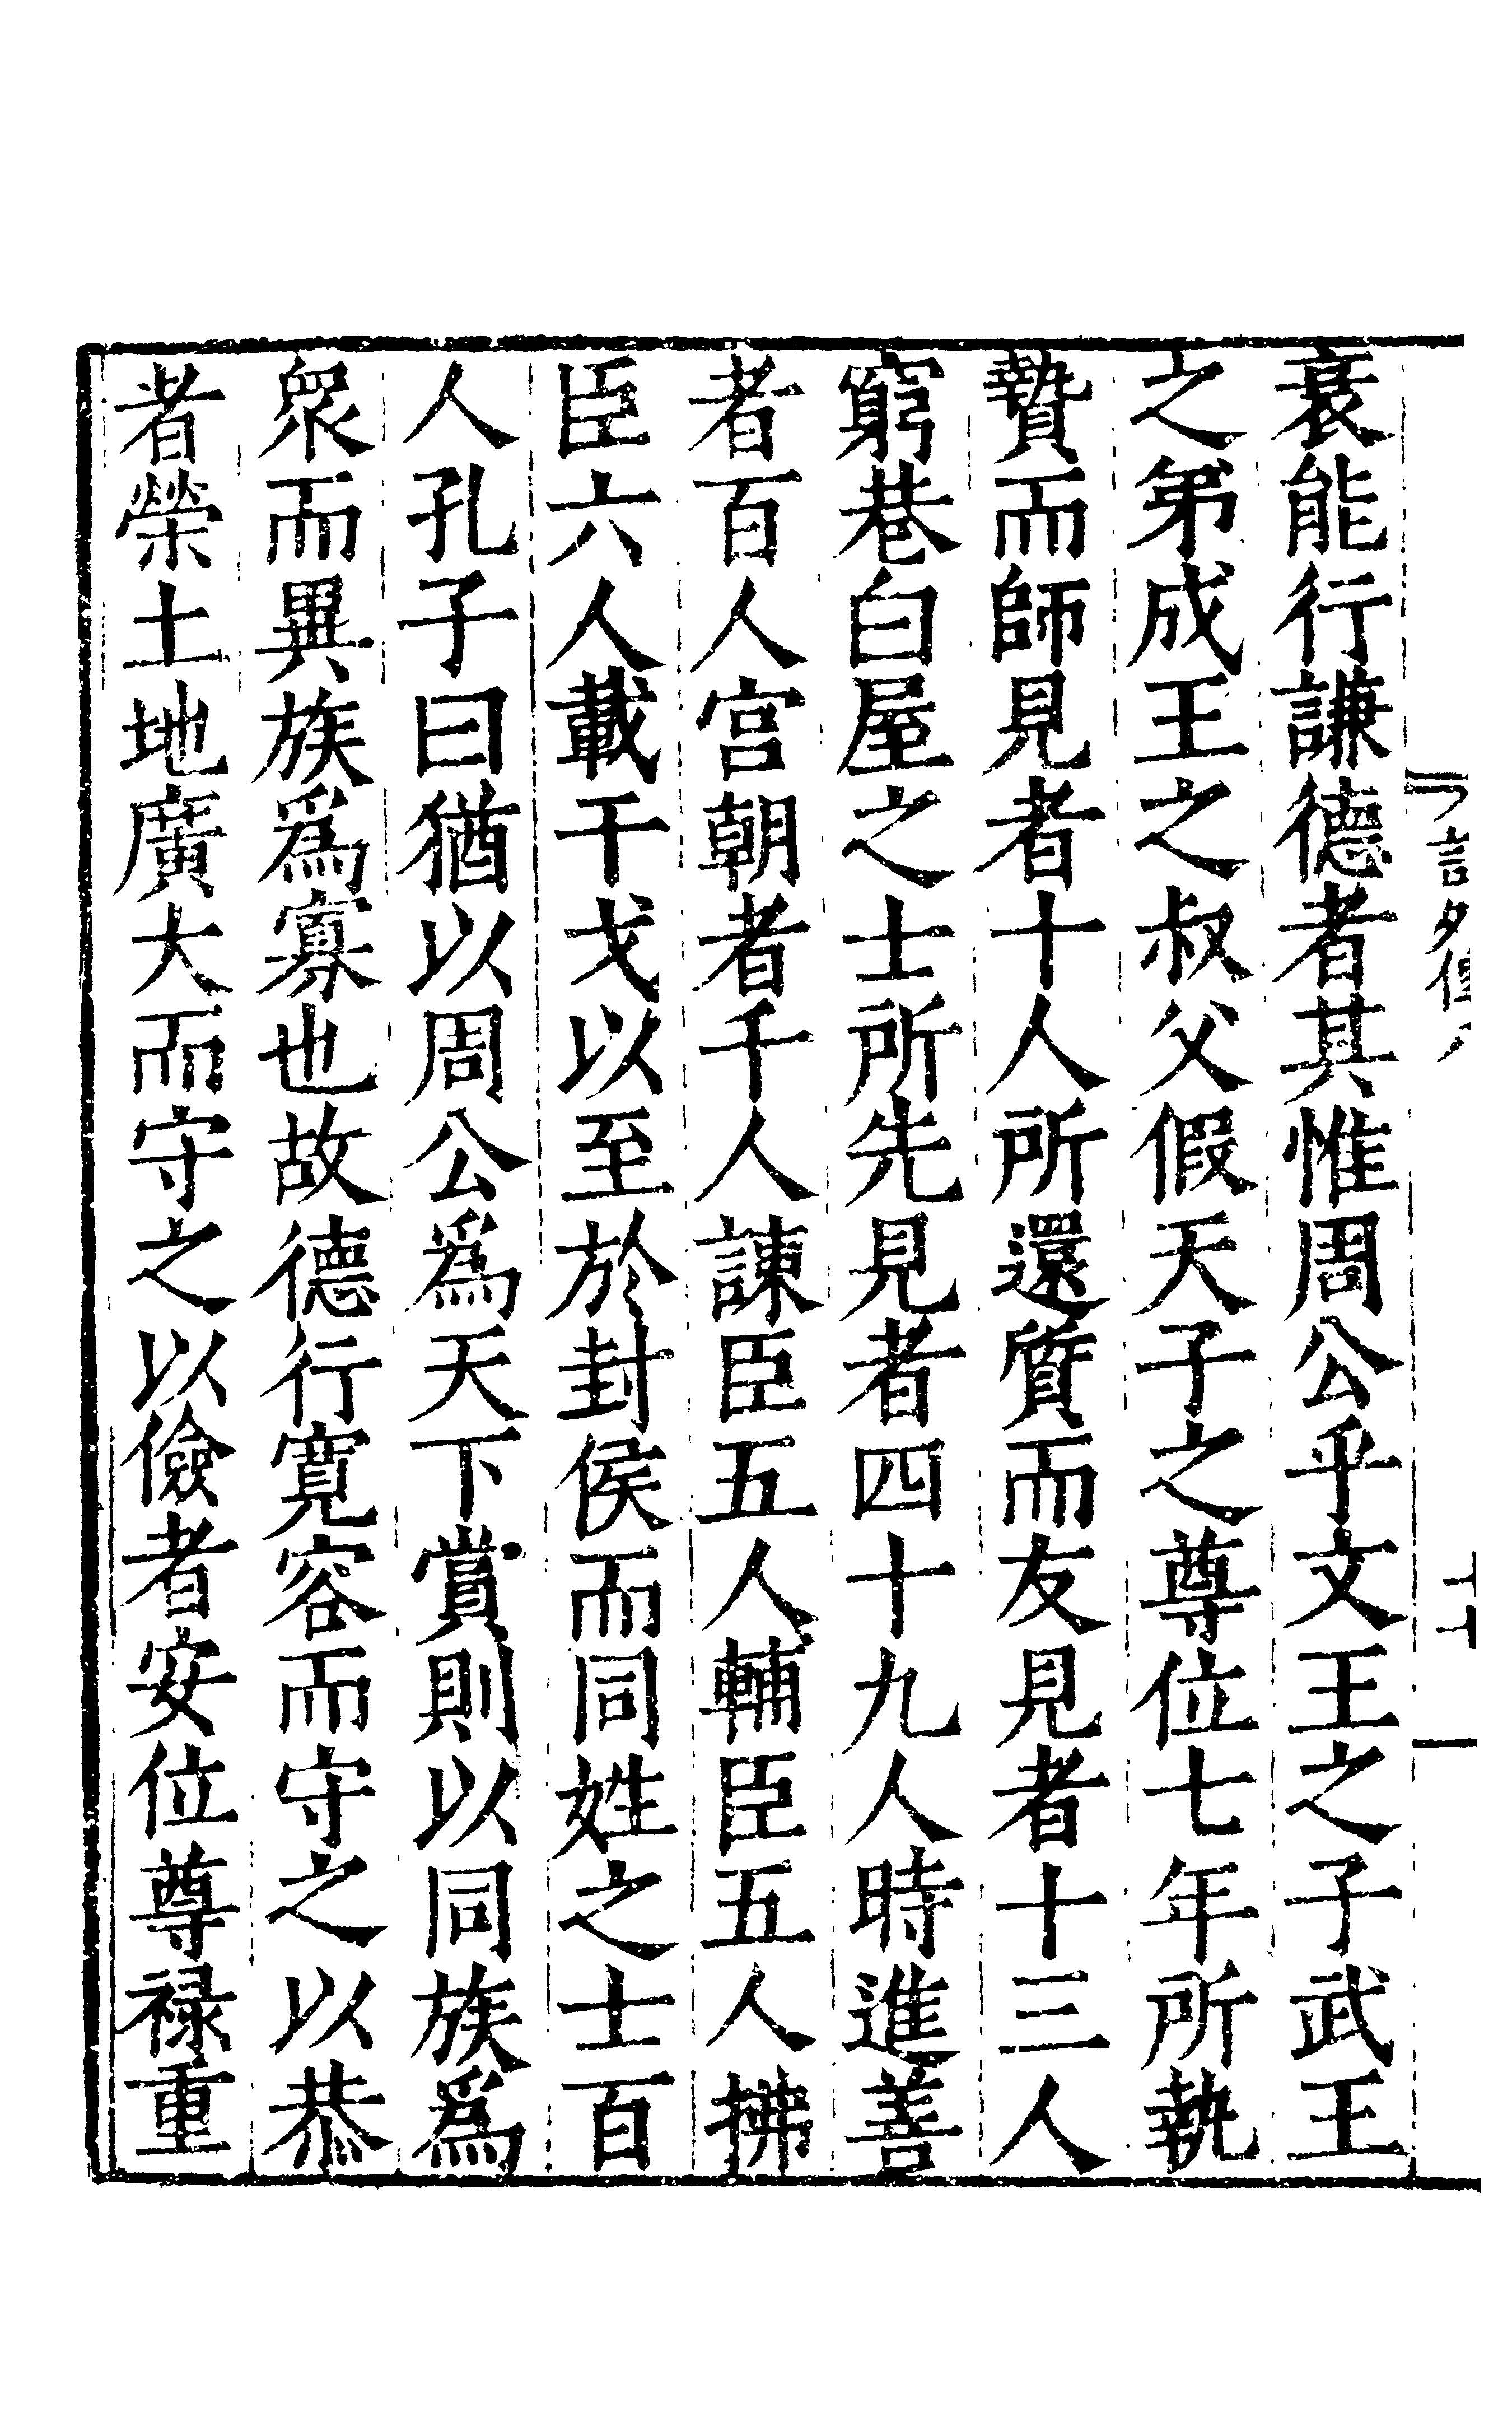 衰能行謙德者其惟周公乎文王之子武王
之弟成王之叔父假天子之尊位七年所執
贄而師見者十人所還質而友見者十三人
窮巷白屋之士所先見者四十九人時進善
者百人宮朝者千人諫臣五人輔臣五人拂
臣六人載干戈以至於封侯而同姓之士百
人孔子曰猶以周公爲天下賞則以同族爲
衆而異族爲寡也故德行寬容而守之以恭
者榮土地廣大而守之以儉者安位尊祿重